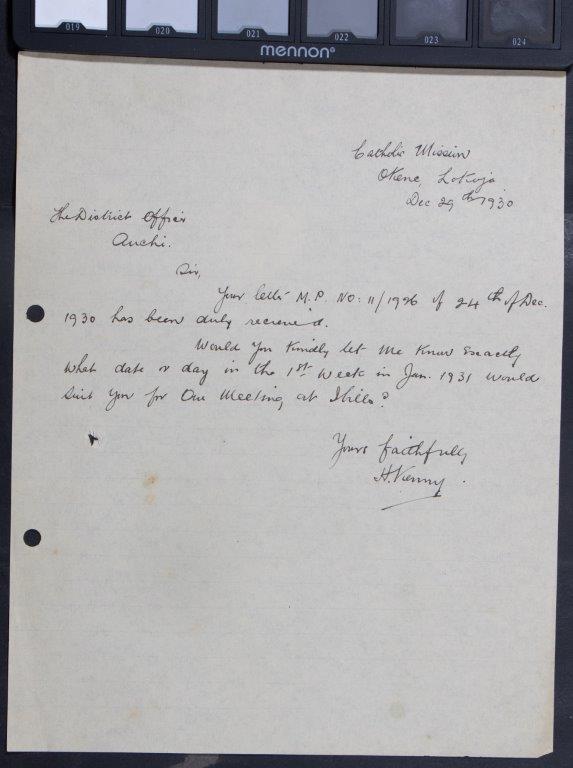 019 020 021 022 023 024
mennon®
Catholic Mission
Okene, Lokoja
Dec 29th 1930
The District Officer
Auchi.
Sir,
Your letter M.P. No: 11/1926 of 24th of Dec.
1930 has been duly received.
Would you kindly let me know exactly
what date or day in the 1st week in Jan. 1931 would
suit you for our meeting at Ibillo?
Yours faithfully
H.